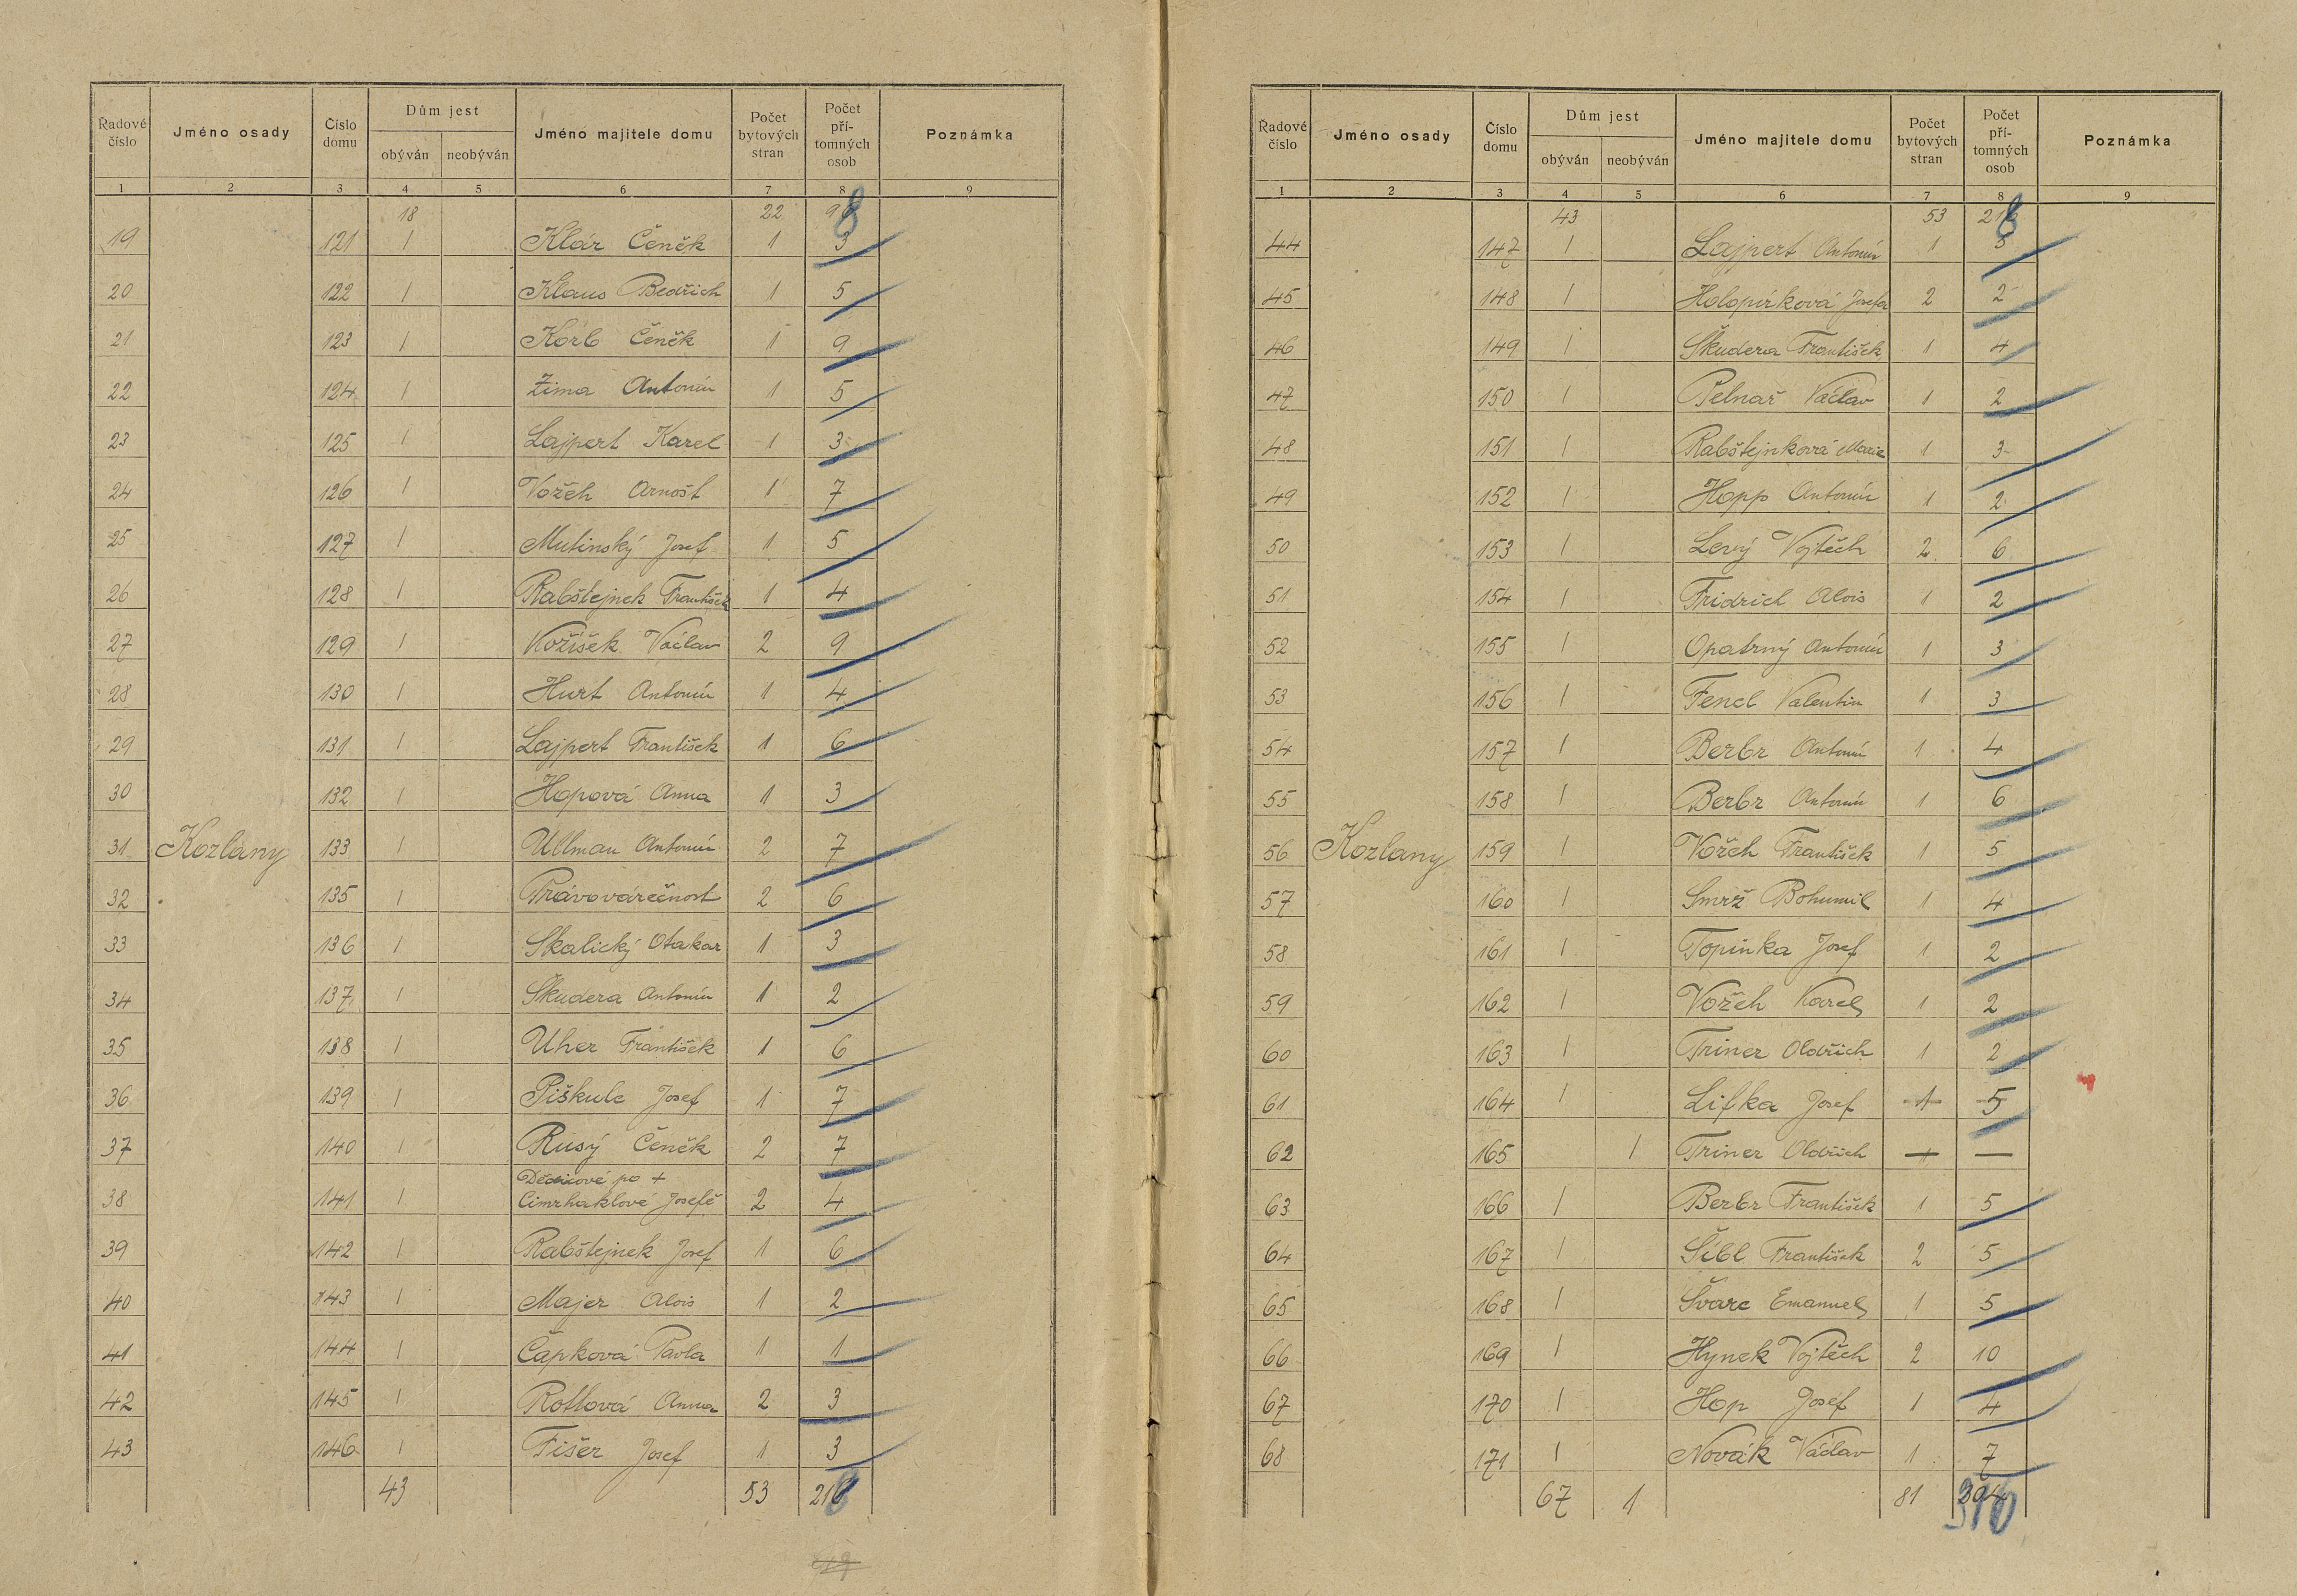 Řadové číslo | Jméno osady | Číslo domu | Dům jest obýván | neobýván | Jméno majitele domu | Počet bytových stran | Počet přítomných osob | Poznámka
1 | 2 | 3 | 4 | 5 | 6 | 7 | 8 | 9
18 | 22 | 98
19 | 121 | 1 | Klár Čeněk | 1 | 3
20 | 122 | 1 | Klaus Bedřich | 1 | 5
21 | 123 | 1 | Korb Čeněk | 1 | 9
22 | 124 | 1 | Zima Antonín | 1 | 5
23 | 125 | 1 | Lajpert Karel | 1 | 3
24 | 126 | 1 | Vožeh Arnošt | 1 | 7
25 | 127 | 1 | Mutinský Josef | 1 | 5
26 | 128 | 1 | Rabštejnek František | 1 | 4
27 | 129 | 1 | Kožíšek Václav | 2 | 9
28 | 130 | 1 | Hurt Antonín | 1 | 4
29 | 131 | 1 | Lajpert František | 1 | 6
30 | 132 | 1 | Hopová Anna | 1 | 3
31 | Kozlany | 133 | 1 | Ullman Antonín | 2 | 7
32 | 135 | 1 | Právovárečnost | 2 | 6
33 | 136 | 1 | Skalický Otakar | 1 | 3
34 | 137 | 1 | Škudera Antonín | 1 | 2
35 | 138 | 1 | Uher František | 1 | 6
36 | 139 | 1 | Piškule Josef | 1 | 7
37 | 140 | 1 | Rusý Čeněk | 2 | 7
Dědicové po +
38 | 141 | 1 | Cimrhaklové Josefě | 2 | 4
39 | 142 | 1 | Rabštejnek Josef | 1 | 6
40 | 143 | 1 | Majer Alois | 1 | 2
41 | 144 | 1 | Čapková Pavla | 1 | 1
42 | 145 | 1 | Rottová Anna | 2 | 3
43 | 146 | 1 | Fišer Josef | 1 | 3
43 | 53 | 218
Řadové číslo | Jméno osady | Číslo domu | Dům jest obýván | neobýván | Jméno majitele domu | Počet bytových stran | Počet přítomných osob | Poznámka
1 | 2 | 3 | 4 | 5 | 6 | 7 | 8 | 9
43 | 53 | 218
44 | 147 | 1 | Lajpert Antonín | 1 | 5
45 | 148 | 1 | Holopírková Josefa | 2 | 2
46 | 149 | 1 | Škudera František | 1 | 4
47 | 150 | 1 | Pelnař Václav | 1 | 2
48 | 151 | 1 | Rabštejnková Marie | 1 | 3
49 | 152 | 1 | Hopp Antonín | 1 | 2
50 | 153 | 1 | Levý Vojtěch | 2 | 6
51 | 154 | 1 | Fridrich Alois | 1 | 2
52 | 155 | 1 | Opatrný Antonín | 1 | 3
53 | 156 | 1 | Fencl Valentin | 1 | 3
54 | 157 | 1 | Berbr Antonín | 1 | 4
55 | 158 | 1 | Berbr Antonín | 1 | 6
56 | Kozlany | 159 | 1 | Vožeh František | 1 | 5
57 | 160 | 1 | Smrž Bohumil | 1 | 4
58 | 161 | 1 | Topinka Josef | 1 | 2
59 | 162 | 1 | Vožeh Karel | 1 | 2
60 | 163 | 1 | Triner Oldřich | 1 | 2
61 | 164 | 1 | Lifka Josef | 1 | 5
62 | 165 | 1 | Triner Oldřich | — | —
63 | 166 | 1 | Berbr František | 1 | 5
64 | 167 | 1 | Šibl František | 2 | 5
65 | 168 | 1 | Švarc Emanuel | 1 | 5
66 | 169 | 1 | Hynek Vojtěch | 2 | 10
67 | 170 | 1 | Hop Josef | 1 | 4
68 | 171 | 1 | Novák Václav | 1 | 7
67 | 1 | 81